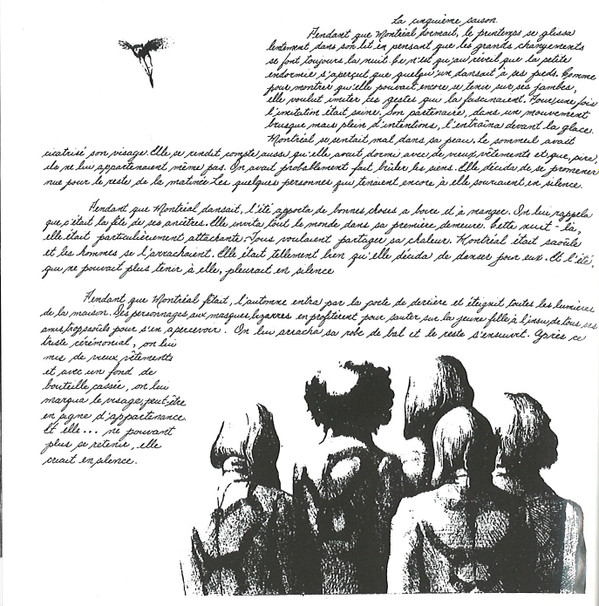 La cinquième saison
Pendant que Montréal dormait, le printemps se glissa
lentement dans son lit en pensant que les grands changements
se font toujours la nuit. Ce n'est qu'au réveil que la petite
endormie s'aperçut que quelqu'un dansait à ses pieds. Comme
pour montrer qu'elle pouvait encore se tenir sur ses jambes,
elle voulut imiter les gestes qui la fascinaient. Pour une fois
l'imitation était sienne. Son partenaire, dans un mouvement
brusque mais plein d'intentions, l'entraîna devant la glace.
Montréal se sentait mal dans sa peau. Le sommeil avait
cicatrisé son visage. Elle se rendit compte aussi qu'elle avait dormi avec de vieux vêtements et que, pire,
ils ne lui appartenaient même pas. On avait probablement fait brûler les siens. Elle décida de se promener
nue pour le reste de la matinée. Les quelques personnes qui tenaient encore à elle souriaient en silence.
Pendant que Montréal dansait, l'été apporta de bonnes choses à boire et à manger. On lui rappela
que c'était la fête de ses ancêtres. Elle invita tout le monde dans sa première demeure. Cette nuit-là,
elle était particulièrement attachante. Tous voulaient partager sa chaleur. Montréal était saoûle
et les hommes se l'arrachaient. Elle était tellement bien qu'elle décida de danser pour eux. Et l'été,
qui ne pouvait plus tenir à elle, pleurait en silence
Pendant que Montréal fêtait, l'automne entra par la porte de derrière et éteignit toutes les lumières
de la maison. Des personnages aux masques bizarres en profitèrent pour sauter sur la jeune fille à l'insu de tous ses
amis trop saoûls pour s'en apercevoir. On lui arracha sa robe de bal et le reste s'ensuivit. Après ce
triste cérémonial, on lui
mit de vieux vêtements
et avec un fond de
bouteille cassée, on lui
marqua le visage, peut-être
en signe d'appartenance.
Et elle... ne pouvant
plus se retenir, elle
criait en silence.